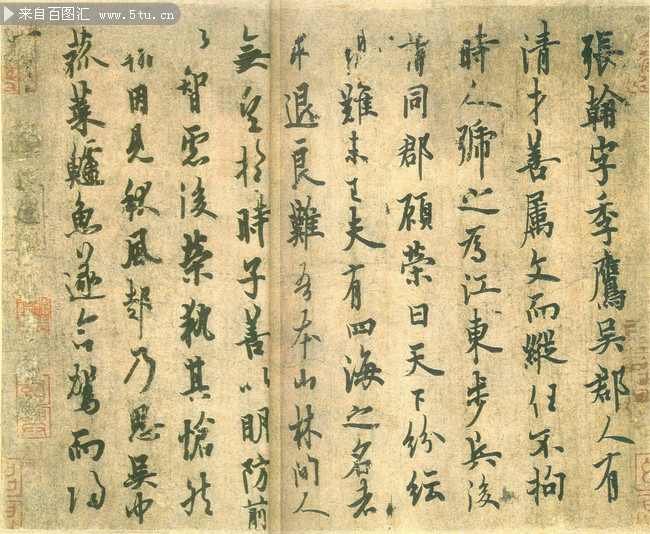 来自百图汇
www.5tu.cn
張翰字季鷹吳郡人有
清才善屬文而縱任不拘
時人號之為江東步兵後
謂同郡顧榮曰天下紛紜
禍難未已夫有四海之名者
求退良難吾本山林間人
無望於時子善以明防前
以智慮後榮執其愴然
翰因見秋風起乃思吳中
菰菜鱸魚遂命駕而歸